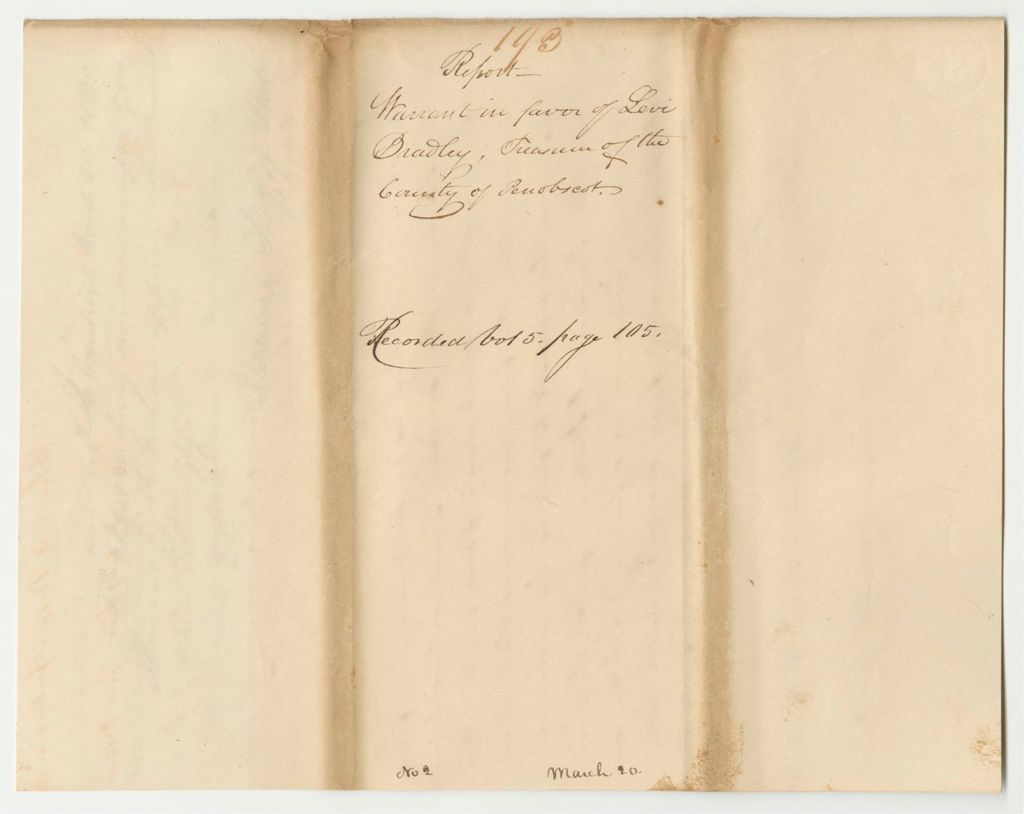 193
Report—
Warrant in favor of Levi
Bradley, Treasurer of the
County of Penobscot.
Recorded vol 5. page 105.
No 2 March 20.